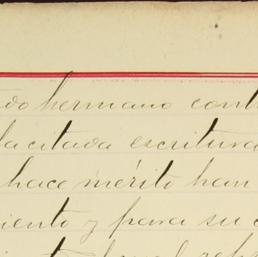 hermano cont
la citada escritura
hace mérito han
iento y para su c